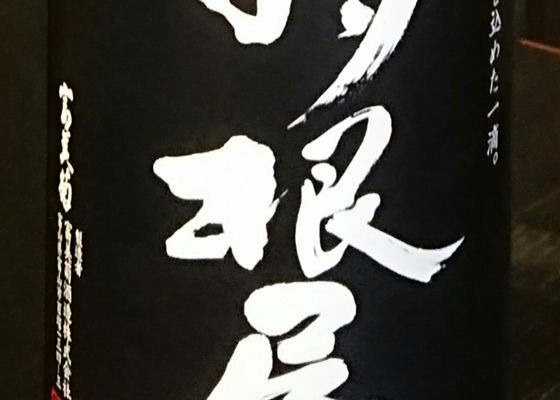 込めた一滴。
羽根屋
富美菊
富美菊酒造株式会社